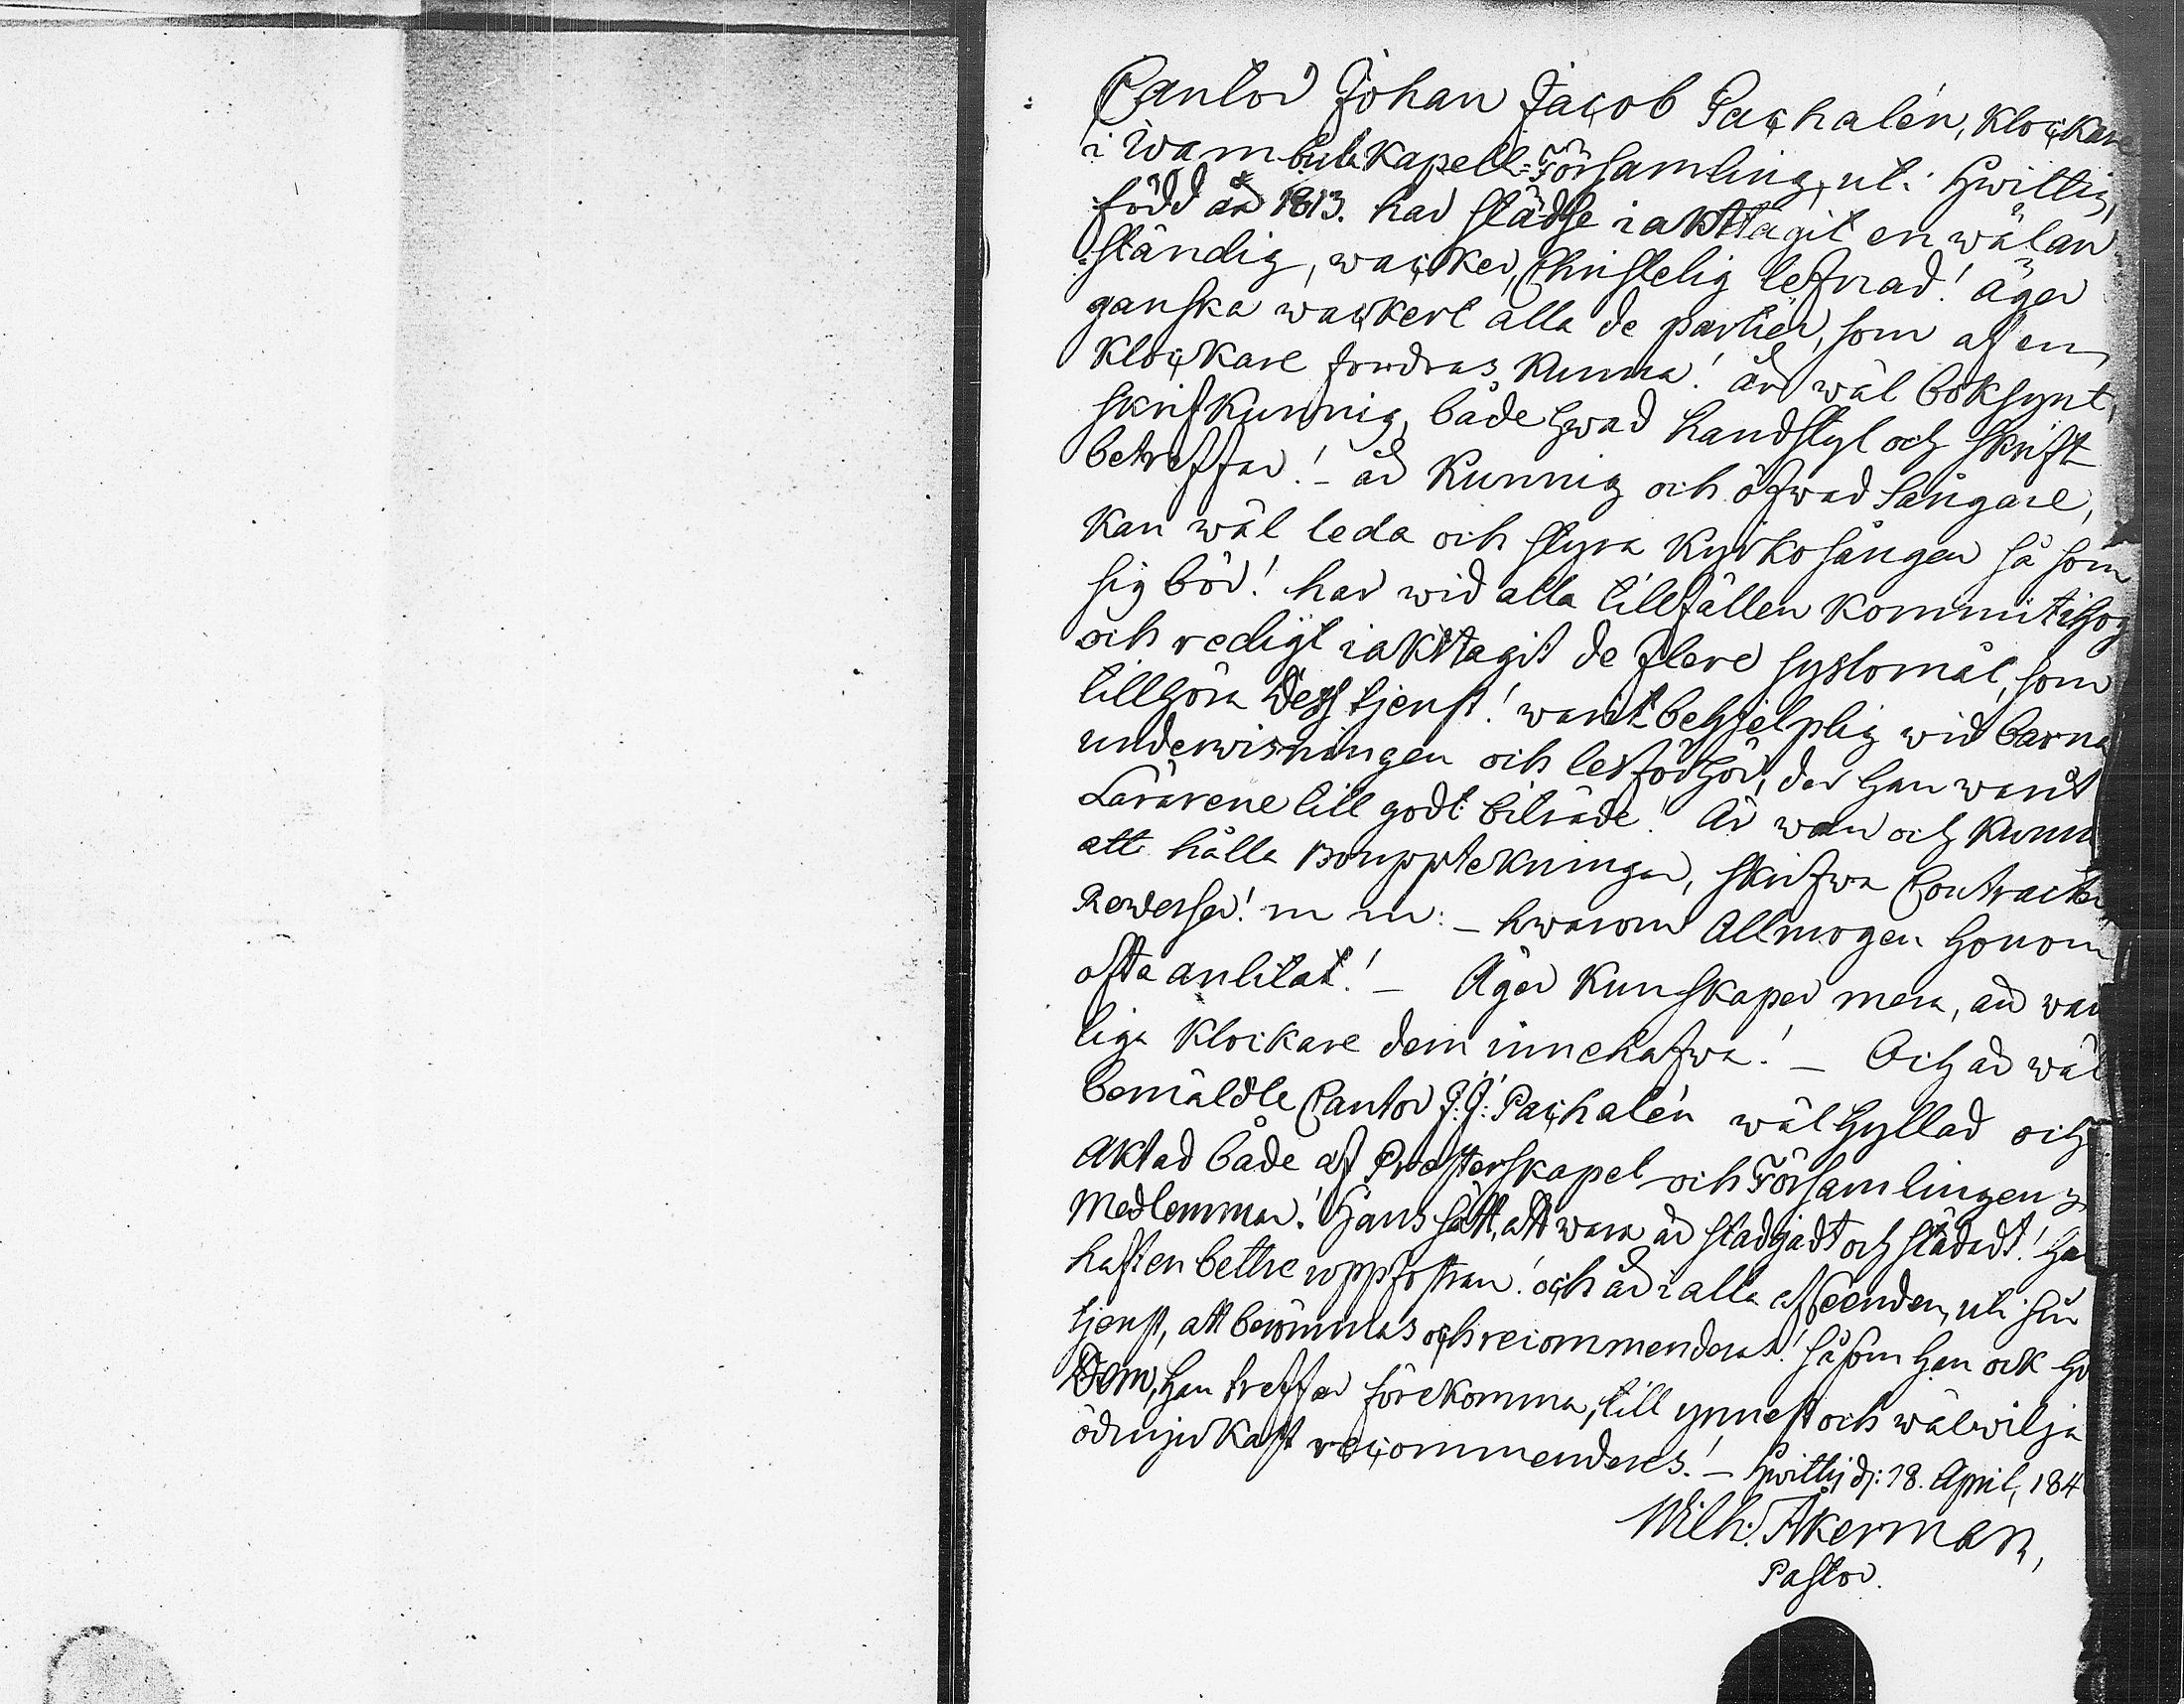 Cantor Johan Jacob Pachalén, Klockare
i Wambula Kapell-Församling, uti Hwittis,
född år 1813. har städse iakttagit en wälan-
=ständig, wacker, Christelig lefnad! äger
ganska wackert alla de partier, som af en
Klockare fordras kunna! är wäl boksynt,
skrifkunnig, både hwad handstyl och skrift
betreffar! – är Kunnig och öfwad Sångare,
kan wäl leda och styra Kyrkosången så som
sig bör! har wid alla tillfällen kommit ihog
och redigt iakttagit de flere sysslomål, som
tillhöra dess tjenst! warit behjelplig wid barna
underwisningen och lesförhör, der han warit
Lärarene till godt biträde! Är wan och kunni
att hålla Bouppteckningar, skrifwa Contracter
Reverser! m m: – hwarom Allmogen honom
ofta anlitat! – Äger Kunskaper mera, än wan
liga Klockare dem innehafwa! – Och är wäl
bemäldte Cantor J: J: Pachalén wäl hyllad och
aktad både af Presterskapet och Församlingens
Medlemmar! Hans sätt, att wara är stadgadt och städadt! Ha
haft en bettre uppfostran! och är i alla afseenden, uti sin
tjenst, att berömmas och recommenderas! så som han ock ho
Dem, han treffar förekomma, till ynnest och wälwilja
ödmjukast recommenderes! – Hwittis d: 18. April, 184
Wilh: Åkerman,
Pastor.